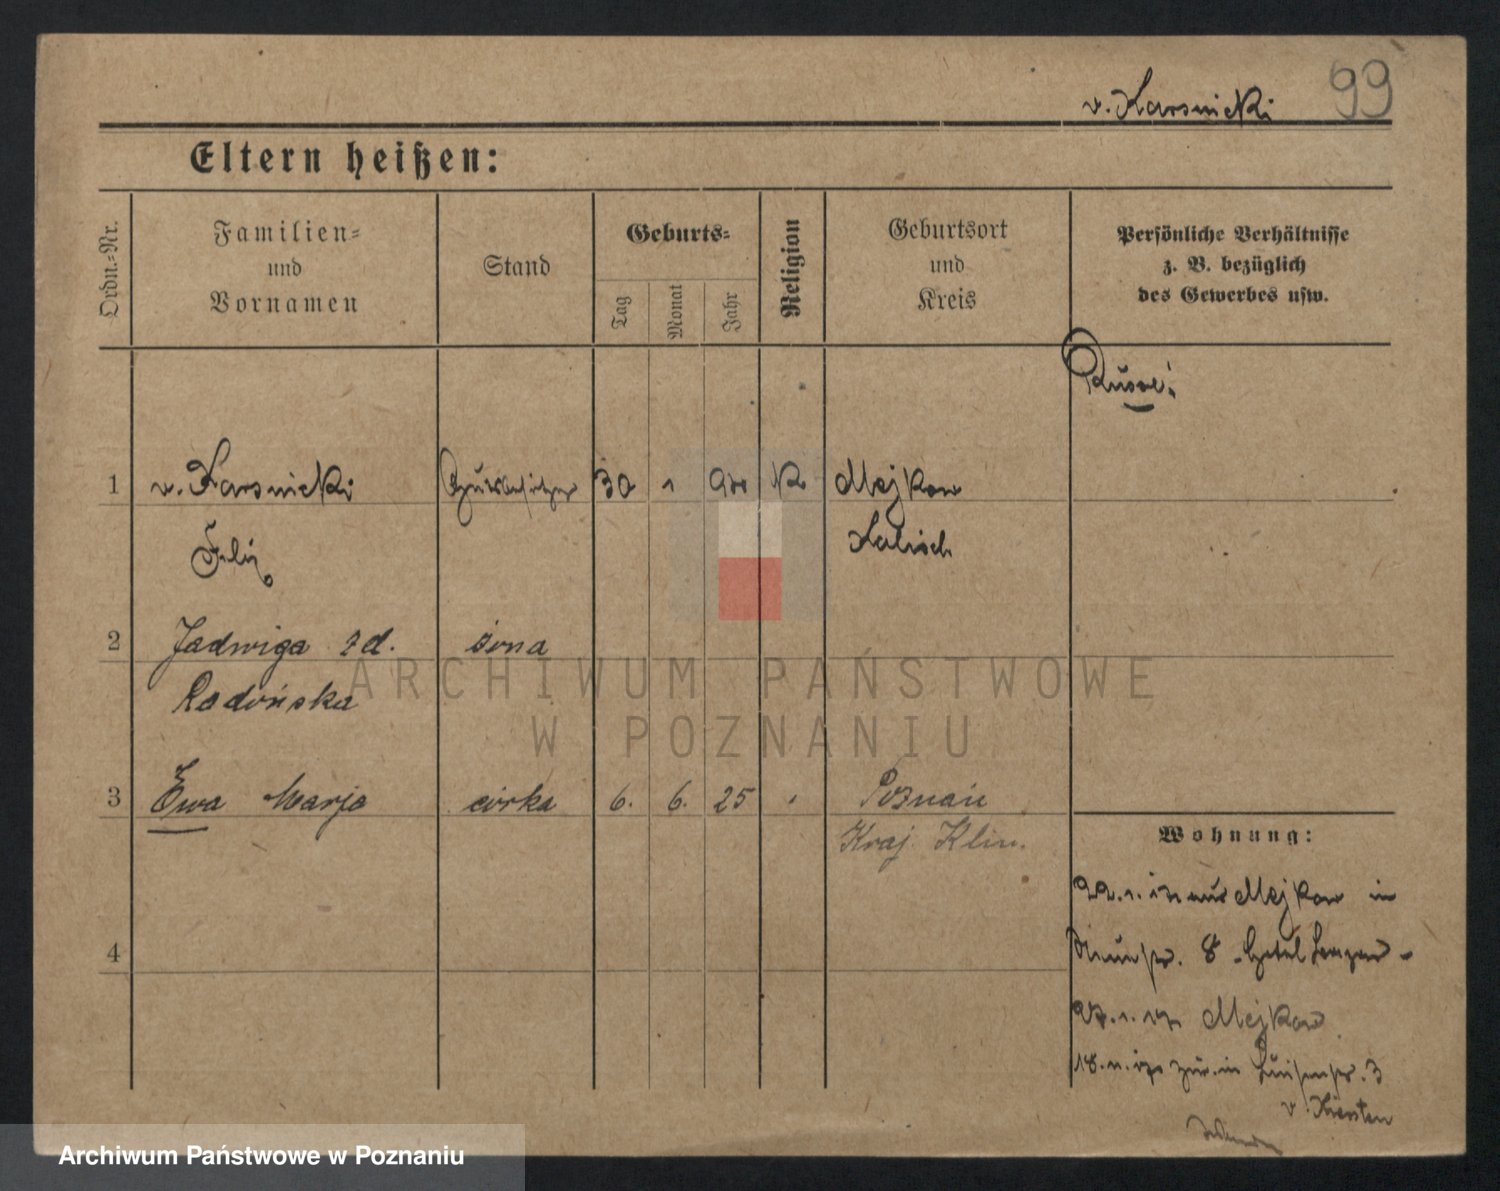 v. Karsnicki 99
Eltern heißen:
Ordn.-Nr.
Familien-
und
Vornamen
Stand
Geburts-
Tag
Monat
Jahr
Religion
Geburtsort
und
Kreis
Persönliche Verhältnisse
z. B. bezüglich
des Gewerbes usw.
Russe!
1 v. Karsnicki Gutsbesitzer 30 1 K Mejkow
Felix Kalisch
2 Jadwiga zd. żona
Radońska
3 Ewa Marja córka 6. 6. 25 Poznań
Kraj. Klin.
Wohnung:
4
22.1. aus Mejkow in
8 Hotel
27.1. Mejkow
18. zur. in Luisenstr. 3
v. Kiersten
ARCHIWUM PAŃSTWOWE
W POZNANIU
Archiwum Państwowe w Poznaniu